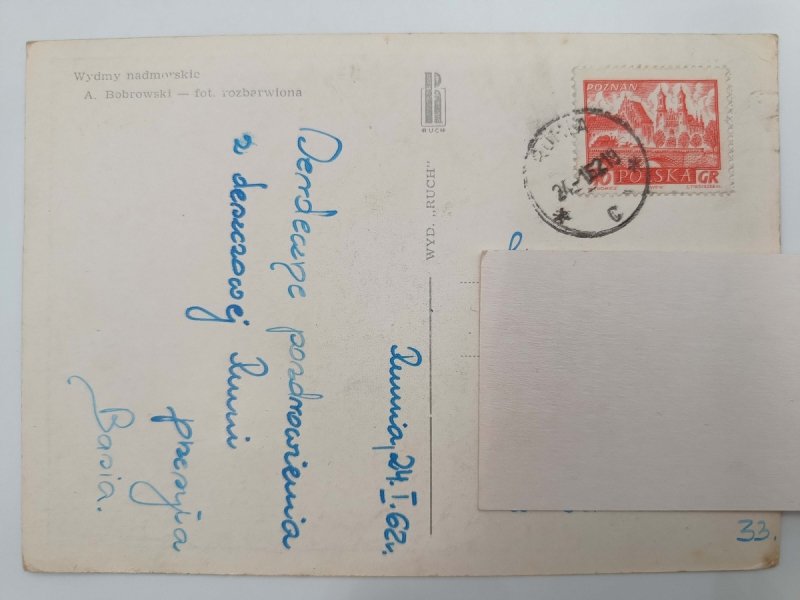 Wydmy nadmorskie
A. Bobrowski — fot. rozbarwiona
RUCH
WYD. „RUCH”
POZNAŃ
POLSKA GR
RUMIA
24.-1.62.18
C
Serdeczne pozdrowienia
z deszczowej Rumi
przesyła
Basia.
Rumia, 24.I.62r.
33.